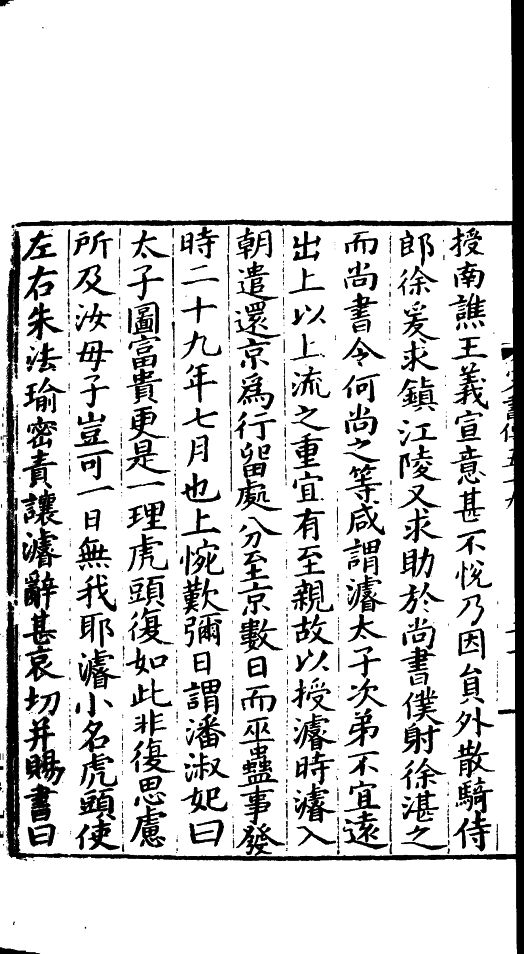 授南譙王義宣意甚不悅乃因員外散騎侍
郎徐爰求鎮江陵又求助於尚書僕射徐湛之
而尚書令何尚之等咸謂濬太子次弟不宜遠
出上以上流之重宜有至親故以授濬時濬入
朝遣還京為行留處分至京數日而巫蠱事發
時二十九年七月也上惋歎彌日謂潘淑妃曰
太子圖富貴更是一理虎頭復如此非復思慮
所及汝母子豈可一日無我耶濬小名虎頭使
左右朱法瑜密責讓濬辭甚哀切并賜書曰